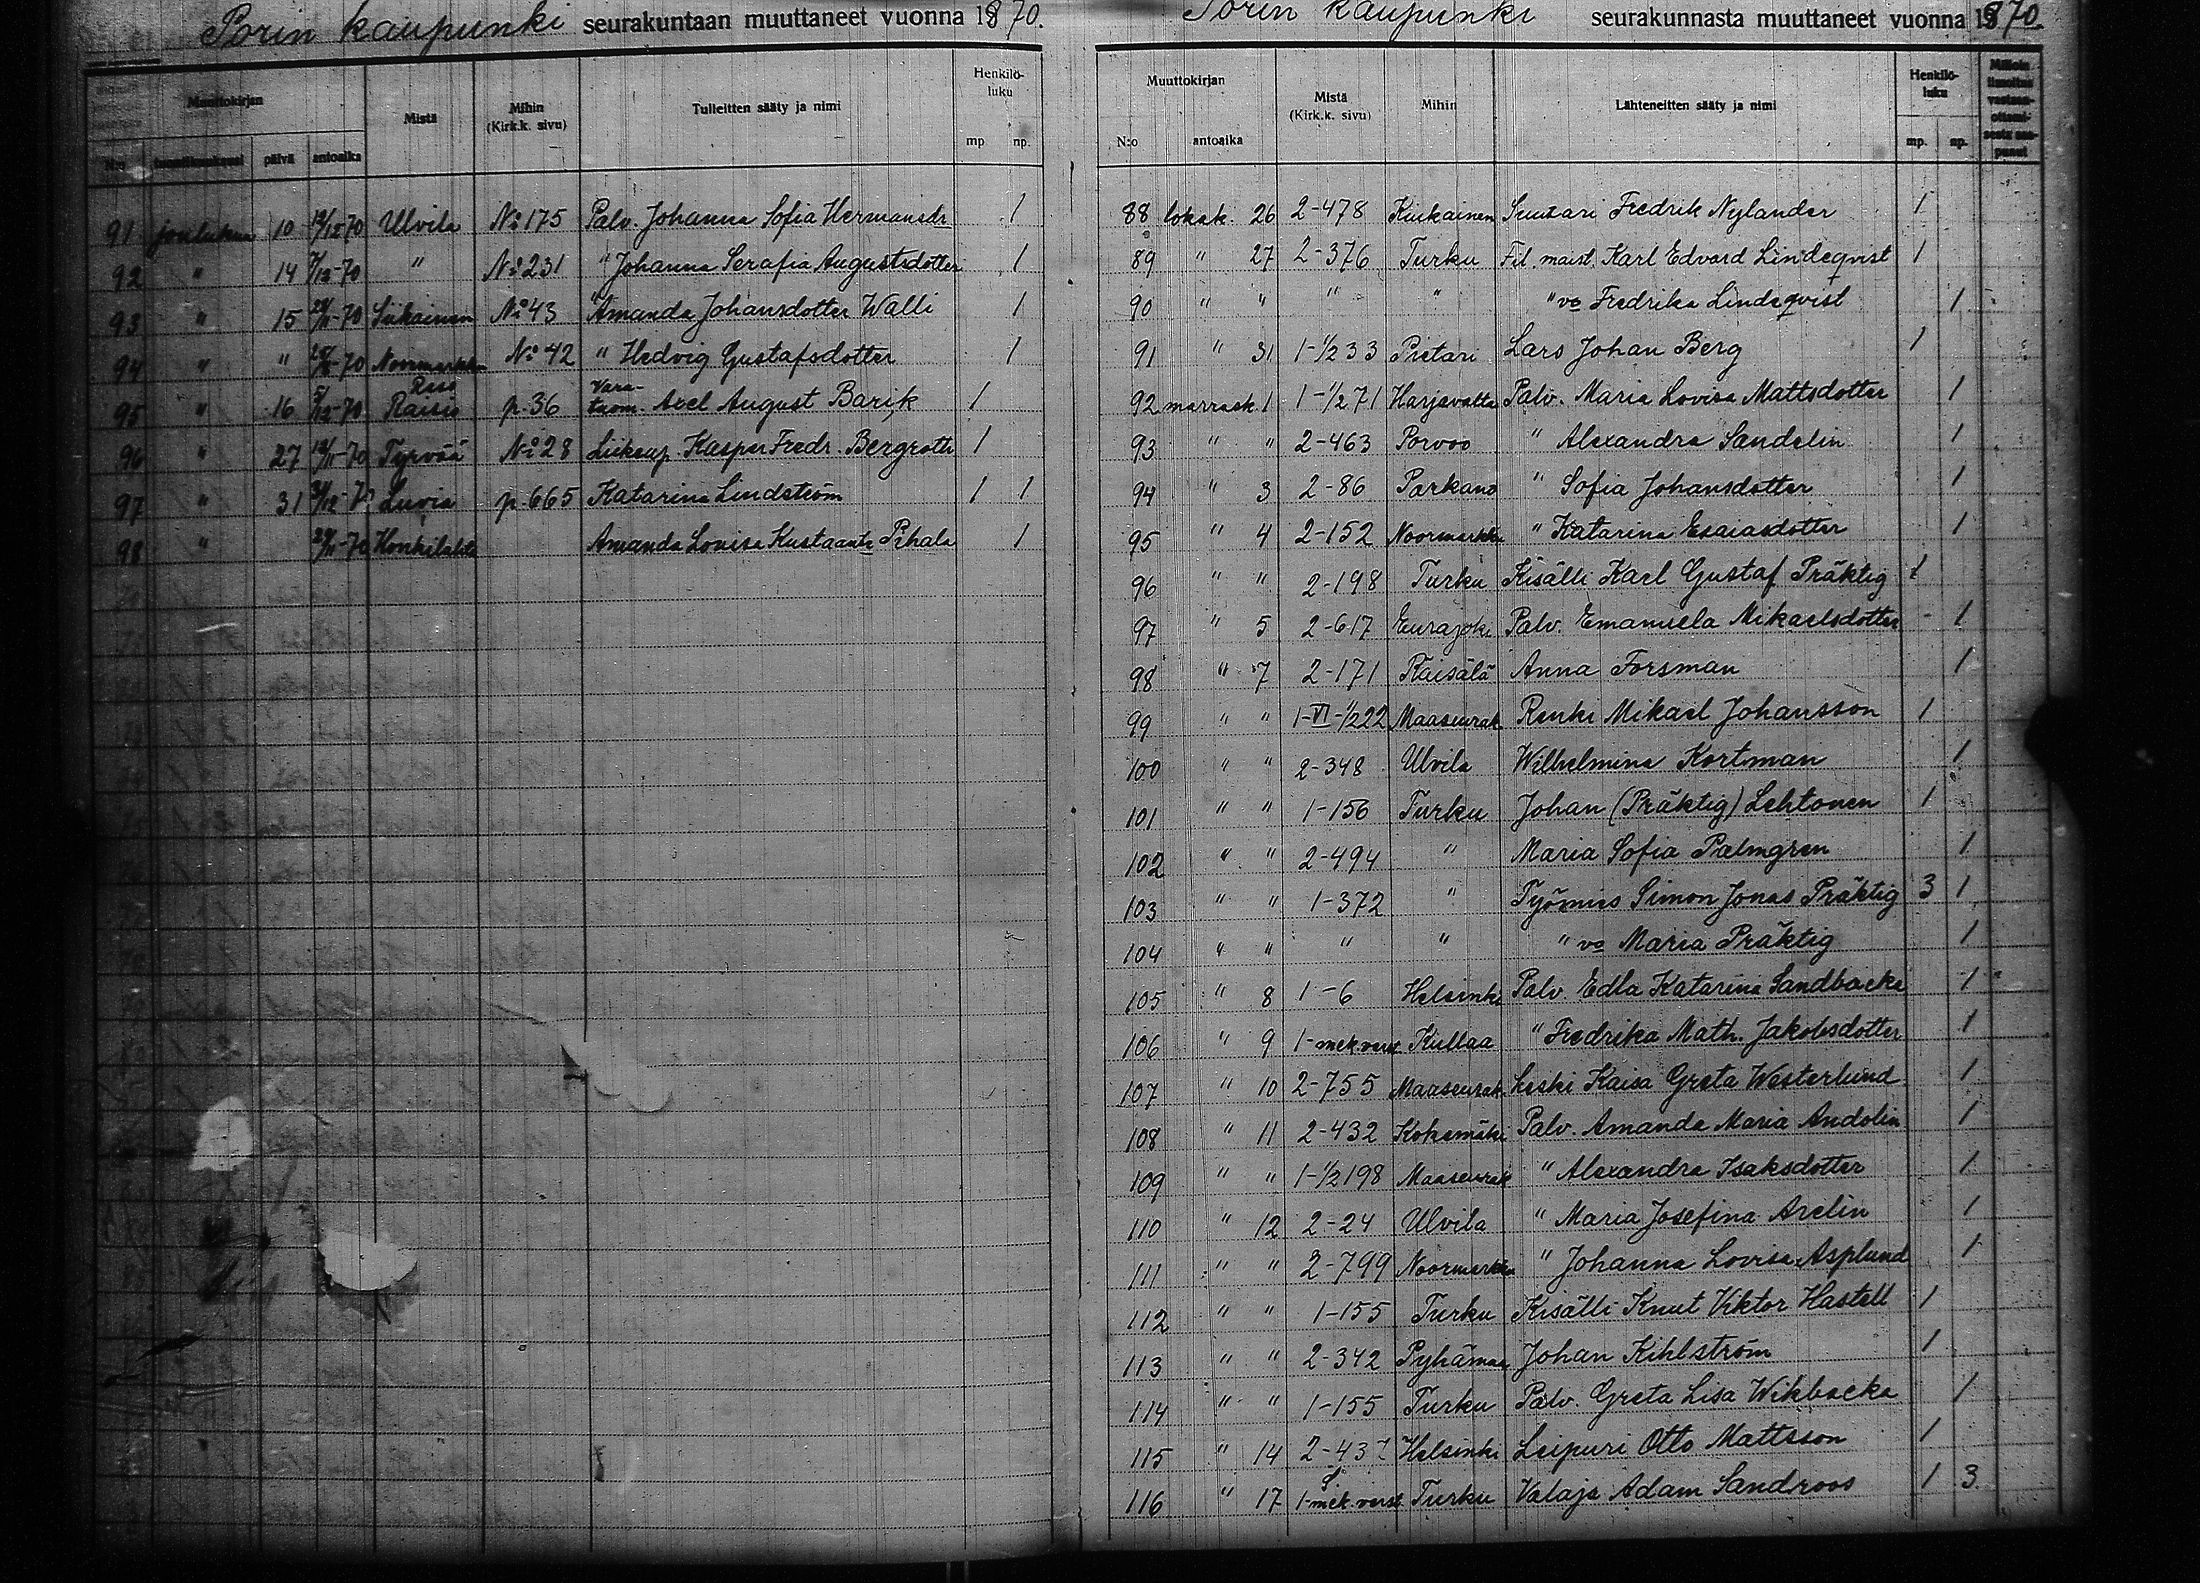 Porin kaupunki seurakuntaan muuttaneet vuonna 1870.
Muuttokirjan
Mistä
Mihin (Kirk.k. sivu)
Tulleitten sääty ja nimi
Henkilö-luku
N:o
päivä
antoaika
mp
np.
91 joulukuu 10 19/12-70 Ulvila No 175 Palv. Johanna Sofia Hermansdr 1
92 " 14 7/12-70 " No 231 " Johanna Serafia Augustsdotter 1
93 " 15 -70 Siikainen No 43 " Amanda Johansdotter Walli 1
94 " " -70 Noormarkku No 42 " Hedvig Gustafsdotter 1
95 " 16 5/12-70 Raisio p. 36 Vara-tuom. Axel August Barik 1
96 " 27 19/11-70 Tyrvää No 28 Liikeap. Kasper Fredr. Bergroth 1
97 " 31 -70 Luvia p. 665 Katarina Lindström 1 1
98 " 29/11-70 Honkilahti Amanda Lovisa Kustaant Pihala 1
Porin kaupunki seurakunnasta muuttaneet vuonna 1870.
Muuttokirjan
Mistä (Kirk.k. sivu)
Mihin
Lähteneitten sääty ja nimi
Henkilö-luku
N:o
antoaika
mp.
np.
88 lokak. 26 2-478 Kiukainen Suutari Fredrik Nylander 1
89 " 27 2-376 Turku Fil. maist. Karl Edvard Lindeqvist 1
90 " " " " " vo Fredrika Lindeqvist 1
91 " 31 1-1/2 33 Pietari Lars Johan Berg 1
92 marrask. 1 1-1/2 71 Harjavalta Palv. Maria Lovisa Mattsdotter 1
93 " " 2-463 Porvoo " Alexandra Sandelin 1
94 " 3 2-86 Parkano " Sofia Johansdotter 1
95 " 4 2-152 Noormarkku " Katarina Esaiasdotter 1
96 " " 2-198 Turku Kisälli Karl Gustaf Präktig 1
97 " 5 2-617 Eurajoki Palv. Emanuela Mikaelsdotter - 1
98 " 7 2-171 Räisälä Anna Forsman 1
99 " " 1-VI-1/2 22 Maaseurak. Renki Mikael Johansson 1
100 " " 2-348 Ulvila Wilhelmina Kortman 1
101 " " 1-156 Turku Johan (Präktig) Lehtonen 1
102 " " 2-494 " Maria Sofia Palmgren 1
103 " " 1-372 " Työmies Simon Jonas Präktig 3 1
104 " " " " " vo Maria Präktig 1
105 " 8 1-6 Helsinki Palv Edla Katarina Sandbacka 1
106 " 9 1-mek.verst. Kullaa " Fredrika Math. Jakobsdotter 1
107 " 10 2-755 Maaseurak. Leski Kaisa Greta Westerlund 1
108 " 11 2-432 Kokemäki Palv. Amanda Maria Andolin 1
109 " " 1-1/2 198 Maaseurak " Alexandra Isaksdotter 1
110 " 12 2-24 Ulvila " Maria Josefina Arelin 1
111 " " 2-799 Noormarkku " Johanna Lovisa Asplund 1
112 " " 1-155 Turku Kisälli Knut Viktor Hastell 1
113 " " 2-342 Pyhämaa Johan Kihlström 1
114 " " 1-155 Turku Palv. Greta Lisa Wikbacka 1
115 " 14 2-437 Helsinki Leipuri Otto Mattsson 1
116 " 17 1-mek.verst Turku Valaja Adam Sandroos 1 3